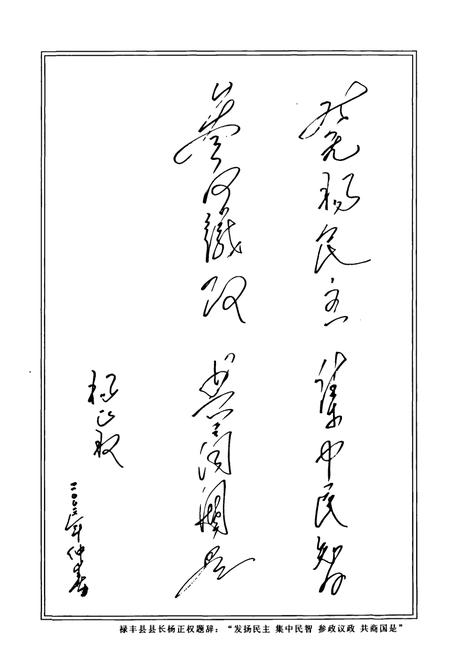 發扬民主 集中民智
參政議政 共商國是
杨正权
年仲春
禄丰县县长杨正权题辞：“发扬民主 集中民智 参政议政 共商国是”